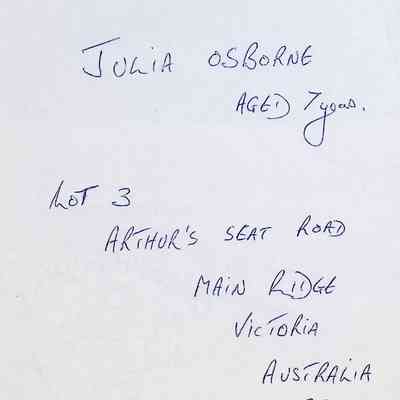 JULIA OSBORNE
AGED 7 years.
LOT 3
ARTHUR'S SEAT ROAD
MAIN RIDGE
VICTORIA
AUSTRALIA